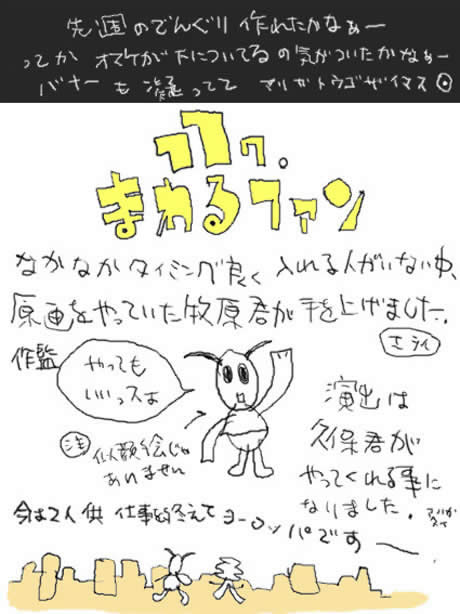 先週のでんぐり 作れたかなぁー
ってか オマケが下についてるの気がついたかなぁー
バナーも凝ってて アリガトウゴザイマス
まわるファン
なかなかタイミング良く 入れる人がいない中、
原画をやっていた牧原君が手を上げました。
作監
やっても
いいっスよ
注 似顔絵じゃ
ありません
演出は
久保君が
やってくれる事に
なりました。
今は2人供 仕事を終えて ヨーロッパですー